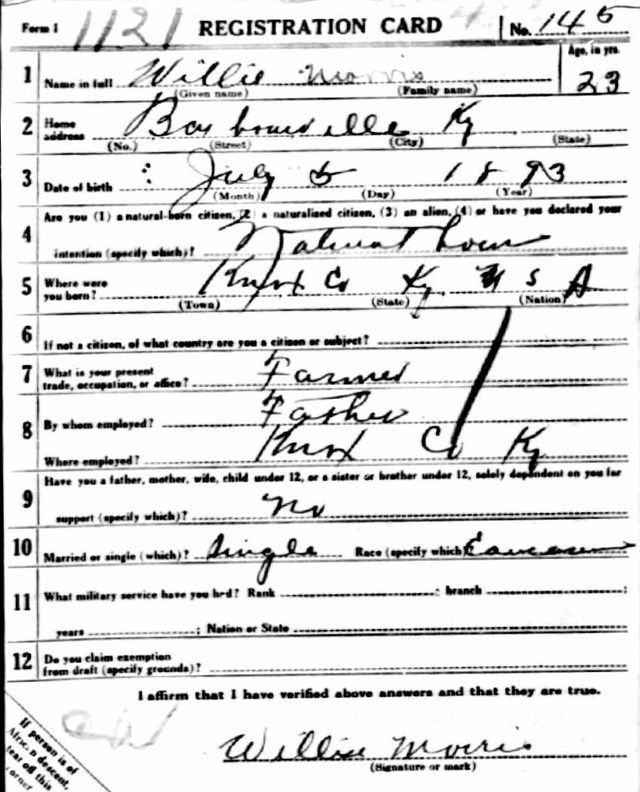 Form 1 1121 REGISTRATION CARD No. 145
Age, in yrs.
1 Name in full Willie Morris 23
(Given name) (Family name)
2 Home address Barbourville Ky
(No.) (Street) (City) (State)
3 Date of birth July 5 1893
(Month) (Day) (Year)
4 Are you (1) a natural-born citizen, (2) a naturalized citizen, (3) an alien, (4) or have you declared your
intention (specify which)? Natural born
5 Where were you born? Knox Co Ky U S A
(Town) (State) (Nation)
6 If not a citizen, of what country are you a citizen or subject?
7 What is your present trade, occupation, or office? Farmer
8 By whom employed? Father
Where employed? Knox Co Ky
9 Have you a father, mother, wife, child under 12, or a sister or brother under 12, solely dependent on you for
support (specify which)? No
10 Married or single (which)? Single Race (specify which)
11 What military service have you had? Rank ; branch ;
years ; Nation or State
12 Do you claim exemption from draft (specify grounds)?
I affirm that I have verified above answers and that they are true.
Willie Morris
(Signature or mark)
If person is of
African descent,
tear off this
corner